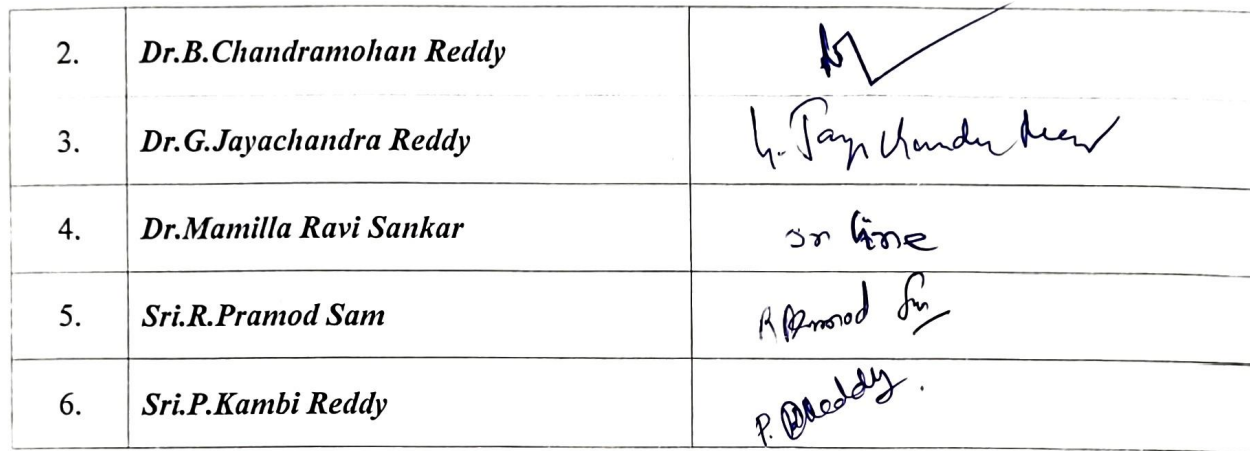 2. Dr.B.Chandramohan Reddy
3. Dr.G.Jayachandra Reddy G. Jaya Chandra Reddy
4. Dr.Mamilla Ravi Sankar on line
5. Sri.R.Pramod Sam R Pramod Sam
6. Sri.P.Kambi Reddy P. Reddy.